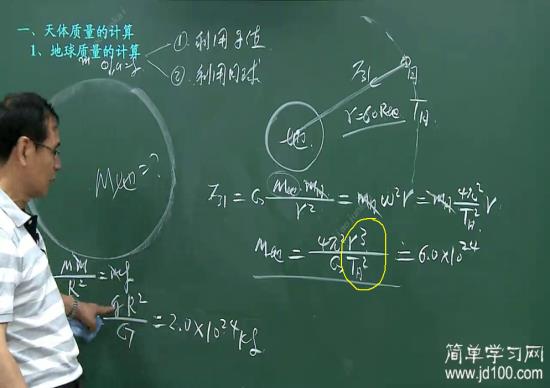 一、天体质量的计算
1、地球质量的计算
① 利用
② 利用月球
M地=?
F引
月
r=60R地
T月
地
F引=G M地·m月/r² = m月ω²r = m月 4π²/T月² r
M地 = 4π²r³/GT月² ≐ 6.0×10²⁴
Mm/R² = mg
gR²/G = 2.0×10²⁴kg
简单学习网
www.jd100.com